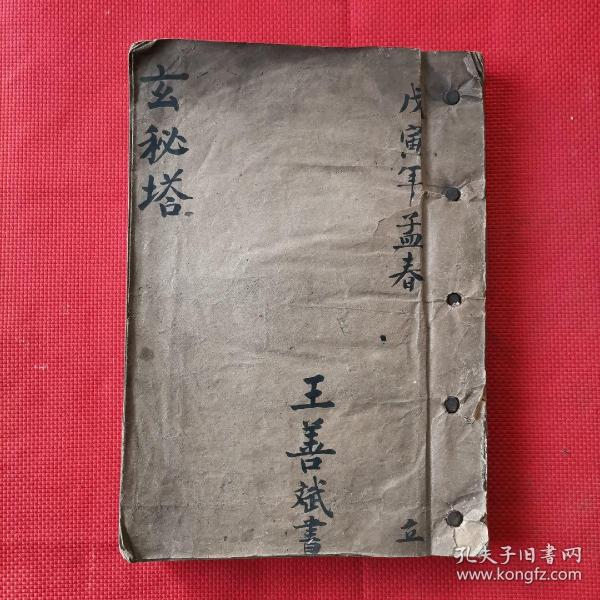 戊寅年孟春 立
王善斌書
玄秘塔
孔夫子旧書网
www.kongfz.com